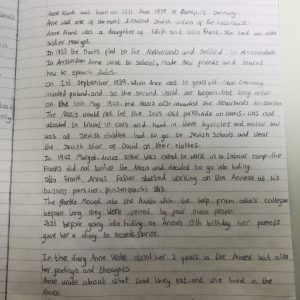 Anne Frank was born on 12th June 1929 in Frankfurt, Germany.
Anne was one of the most discussed Jewish victims of the holocaust.
Anne Frank was a daughter of Edith and Otto Frank. She had an older
sister Margot.
In 1933 the Franks fled to the Netherlands and settled in Amsterdam
In Amsterdam Anne went to school, made new friends and learnt
how to speech dutch.
On 1st September 1939, When Anne was 10 years old Nazi Germany
invaded poland and so the second world war began. Not long after
on the 10th May 1940, the Nazis also invaded the Netherlands Amsterdam
The Nazis would not let the Jews use park benches on trams, was not
allowed to travel in cars and hand in there bicycles and earlier on
was all Jewish children had to go to Jewish schools and wear
the Jewish star of David on their clothes.
In 1942 Margot Annes sister was called to work in a labour camp. the
Franks did not believe the Nazis and decided to go into hiding.
Otto Frank Anna's Father started working on the Annexe at his
business premises prinsengracht 263.
The Franks moved into the Annex with the help from otto's colleagues
before long they were joined by four more people.
Just before going into hiding on Anne's 13th birthday her parents
gave her a diary to records stories.
In the diary Anne wrote about her 2 years in the Annex but also
her feelings and thoughts.
Anne wrote about what food they eat, and who lived in the
Annex.